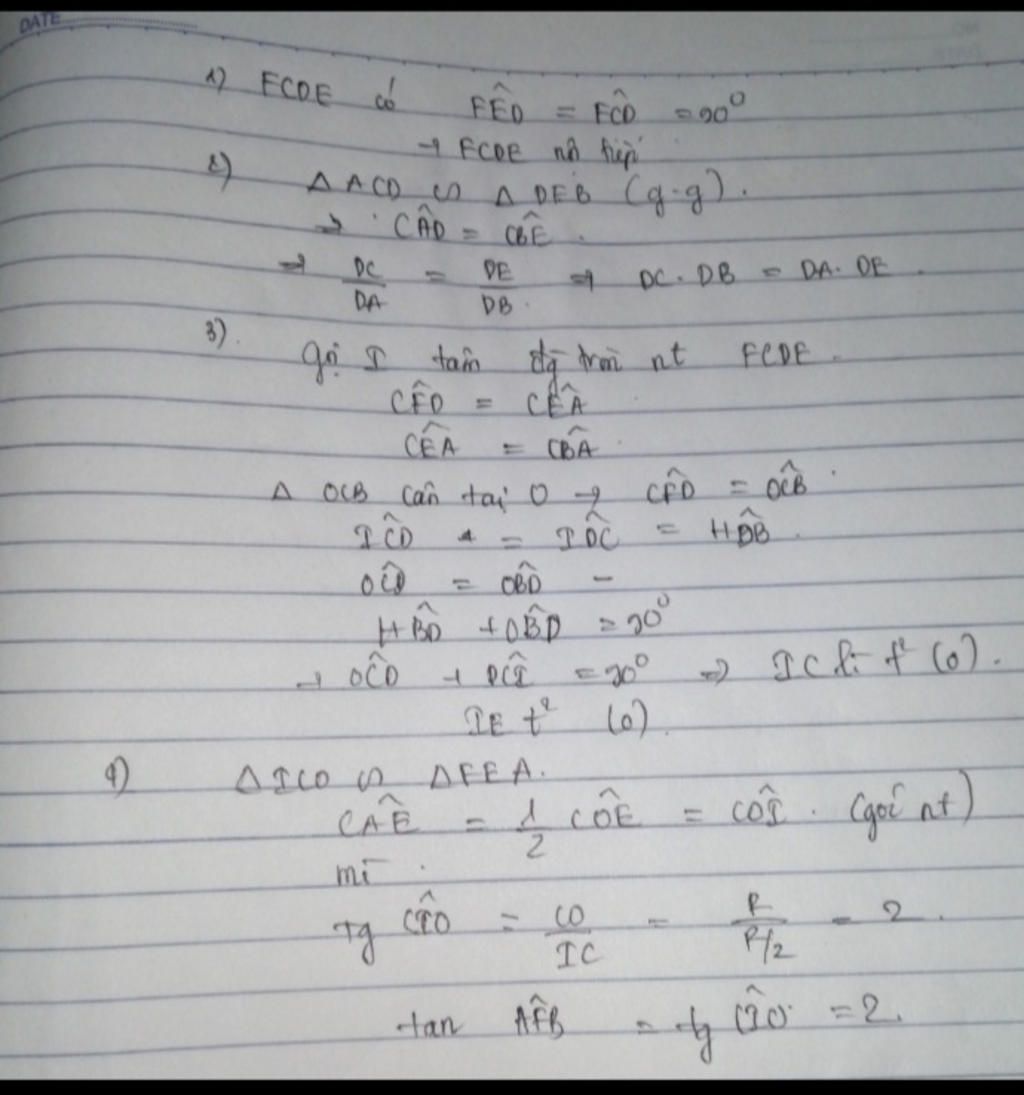 DATE
1) FCDE có FÊD = FĈD = 90⁰
→ FCDE nô tiếp
2) Δ ACD ∽ Δ DEB (g.g).
→ CÂD = CB̂E.
→ DC/DA = DE/DB. → DC.DB = DA.DE.
3).
Gọi I tâm đg tròn nt FCDE.
CF̂D = CÊA
CÊA = CB̂A.
Δ OCB cân tại O → CF̂D = OĈB.
IĈD = ID̂C = HD̂B.
OĈD = OB̂D
HB̂D + OB̂D = 90⁰
→ OĈD + DĈI = 90⁰ ⇒ IC là t² (O).
IE t² (O).
4) Δ ICO ∽ Δ FEA.
CÂE = 1/2 CÔE = CÔI. (góc nt)
mà.
Tg CÎO = CO/IC = R/R/2 = 2.
tan AF̂B = tg CÎO = 2.